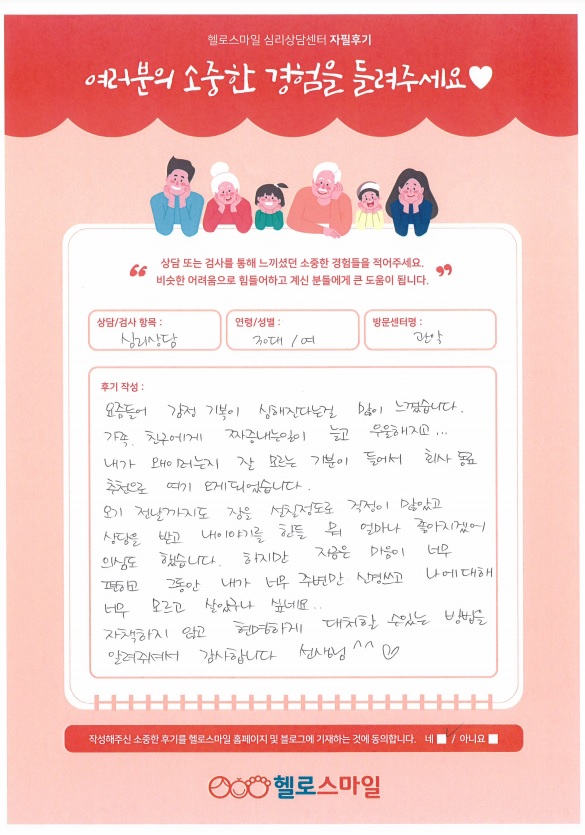 헬로스마일 심리상담센터 자필후기
여러분의 소중한 경험을 들려주세요♥
“ 상담 또는 검사를 통해 느끼셨던 소중한 경험들을 적어주세요.
비슷한 어려움으로 힘들어하고 계신 분들에게 큰 도움이 됩니다. ”
상담/검사 항목 :
심리상담
연령/성별 :
30대 / 여
방문센터명 :
관악
후기 작성 :
요즘들어 감정 기복이 심해진다는걸 많이 느꼈습니다.
가족, 친구에게 짜증내는일이 늘고 우울해지고...
내가 왜이러는지 잘 모르는 기분이 들어서 회사 동료
추천으로 여기 오게되었습니다.
오기 전날까지도 잠을 설칠정도로 걱정이 많았고
상담을 받고 내이야기를 한들 뭐 얼마나 좋아지겠어
의심도 했습니다. 하지만 지금은 마음이 너무
편하고 그동안 내가 너무 주변만 신경쓰고 나에대해
너무 모르고 살았구나 싶네요..
자책하지 않고 현명하게 대처할 수있는 방법을
알려주셔서 감사합니다 선생님 ^^ ♡
작성해주신 소중한 후기를 헬로스마일 홈페이지 및 블로그에 기재하는 것에 동의합니다. 네 ■ / 아니요 ■
헬로스마일